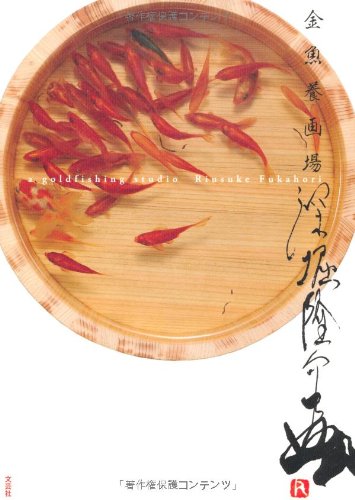 「著作権保護コンテンツ」
金魚養画場
a goldfishing studio Riusuke Fukahori
深堀隆介
R
文芸社
「著作権保護コンテンツ」